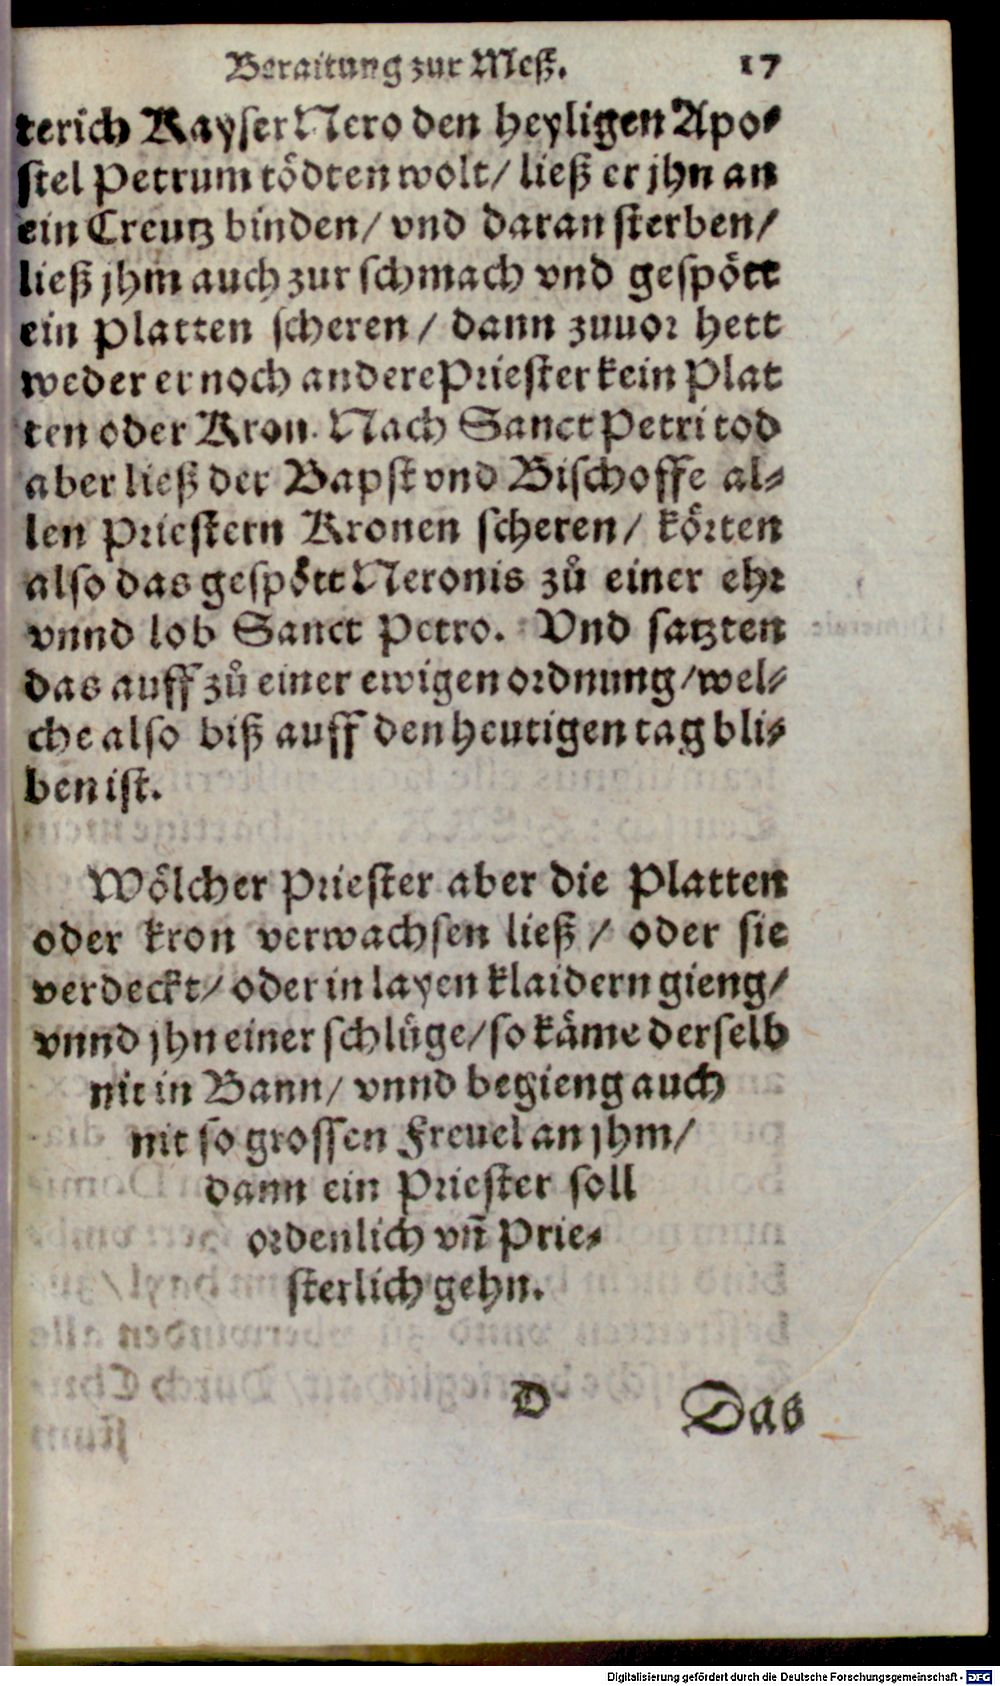 Beraitung zur Meß. 17
terich Kayser Nero den heyligen Apo-
stel Petrum tödten wolt/ ließ er jhn an
ein Creutz binden/ vnd daran sterben/
ließ jhm auch zur schmach vnd gespött
ein Platten scheren/ dann zuuor hett
weder er noch andere Priester kein Plat
ten oder Kron. Nach Sanct Petri tod
aber ließ der Bapst vnd Bischoffe al-
len Priestern Kronen scheren/ körten
also das gespött Neronis zů einer ehr
vnnd lob Sanct Petro. Vnd satzten
das auff zů einer ewigen ordnung/ wel-
che also biß auff den heutigen tag bli-
ben ist.
Wölcher Priester aber die Platten
oder kron verwachsen ließ/ oder sie
verdeckt/ oder in layen klaidern gieng/
vnnd jhn einer schlüge/ so käme derselb
nit in Bann/ vnnd begieng auch
nit so grossen Freuel an jhm/
dann ein Priester soll
ordenlich vñ Prie-
sterlich gehn.
D Das
Digitalisierung gefördert durch die Deutsche Forschungsgemeinschaft - DFG